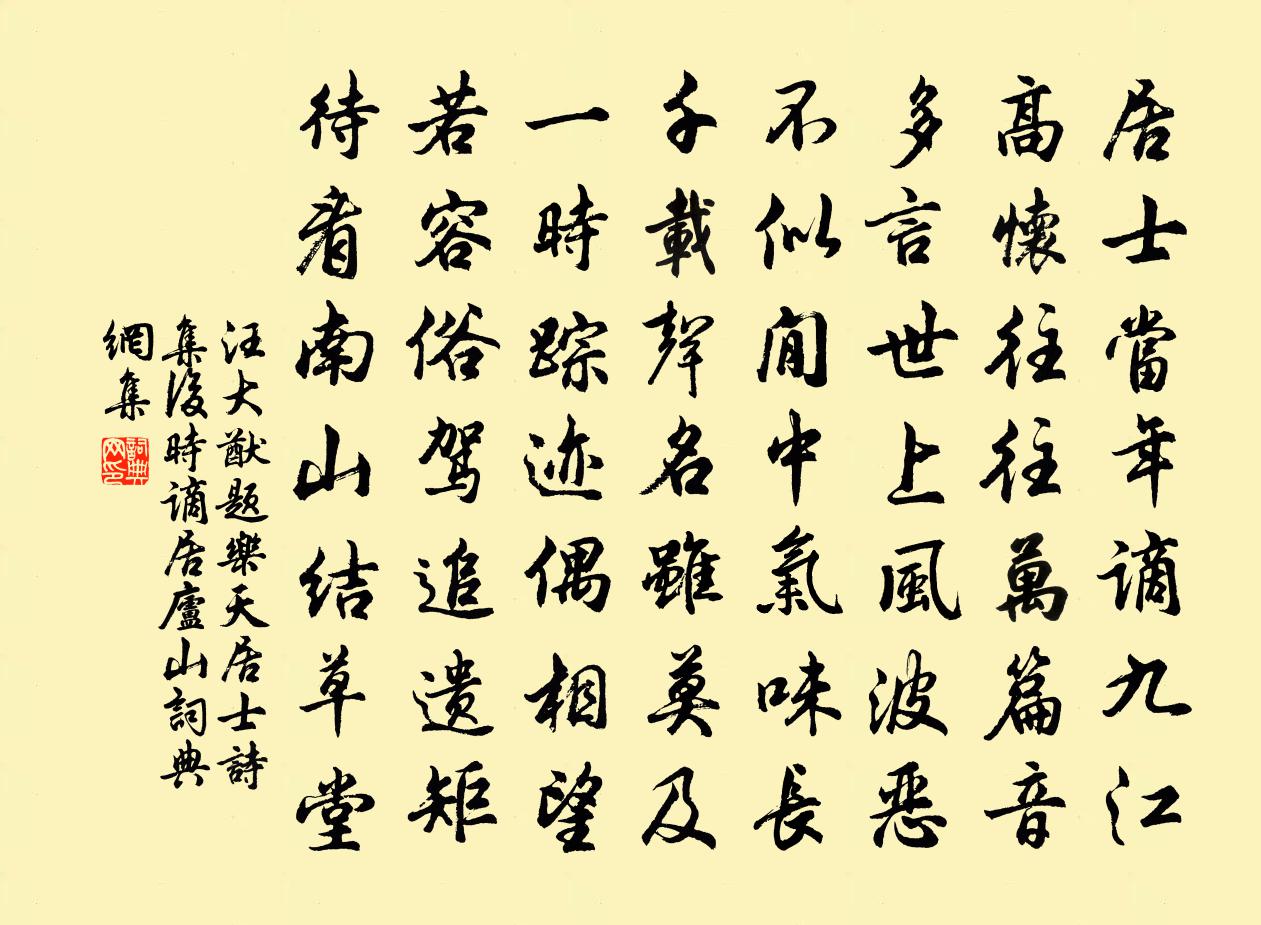 居士當年謫九江
高懷往往萬篇音
多言世上風波惡
不似閒中氣味長
千載聲名雖莫及
一時踪迹偶相望
若容俗駕追遺矩
待看南山結草堂
汪大猷題樂天居士詩
集後時謫居廬山詞典
網集
詞典
网印